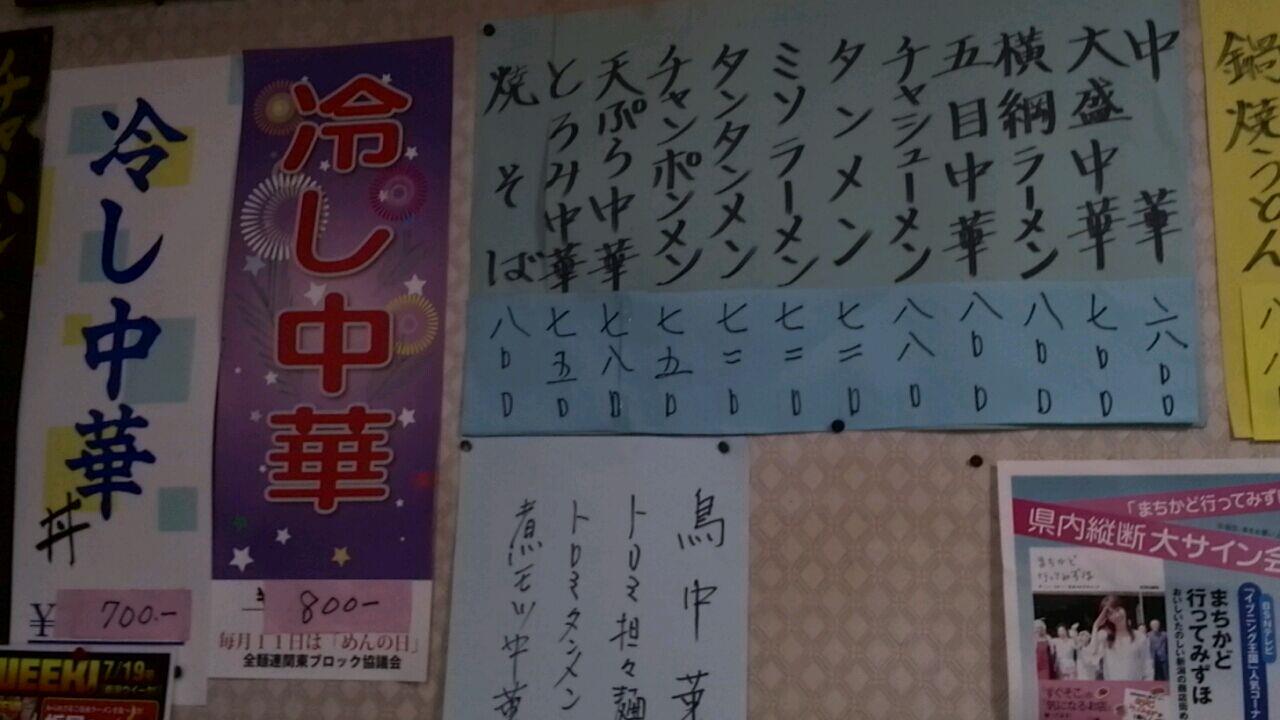 冷し中華
丼
¥ 700.-
冷し中華
800-
毎月11日は「めんの日」
全麺連関東ブロック協議会
中華 六〇〇
大盛中華 七〇〇
横綱ラーメン 八〇〇
五目中華 八〇〇
チャシューメン 八八〇
タンメン 七二〇
ミソラーメン 七二〇
タンタンメン 七二〇
チャンポンメン 七五〇
天ぷら中華 七八〇
とろみ中華 七五〇
焼そば 八〇〇
鳥中華
トロミ担々麺
トロミタンメン
煮モツ中華
鍋焼うどん
「まちかど行ってみず
県内縦断大サイン会
まちかど
行ってみずほ
まちかど
行ってみずほ
「イブニング王国」人気コーナ
すぐそこの
気になるお店
WEEK! 7/19